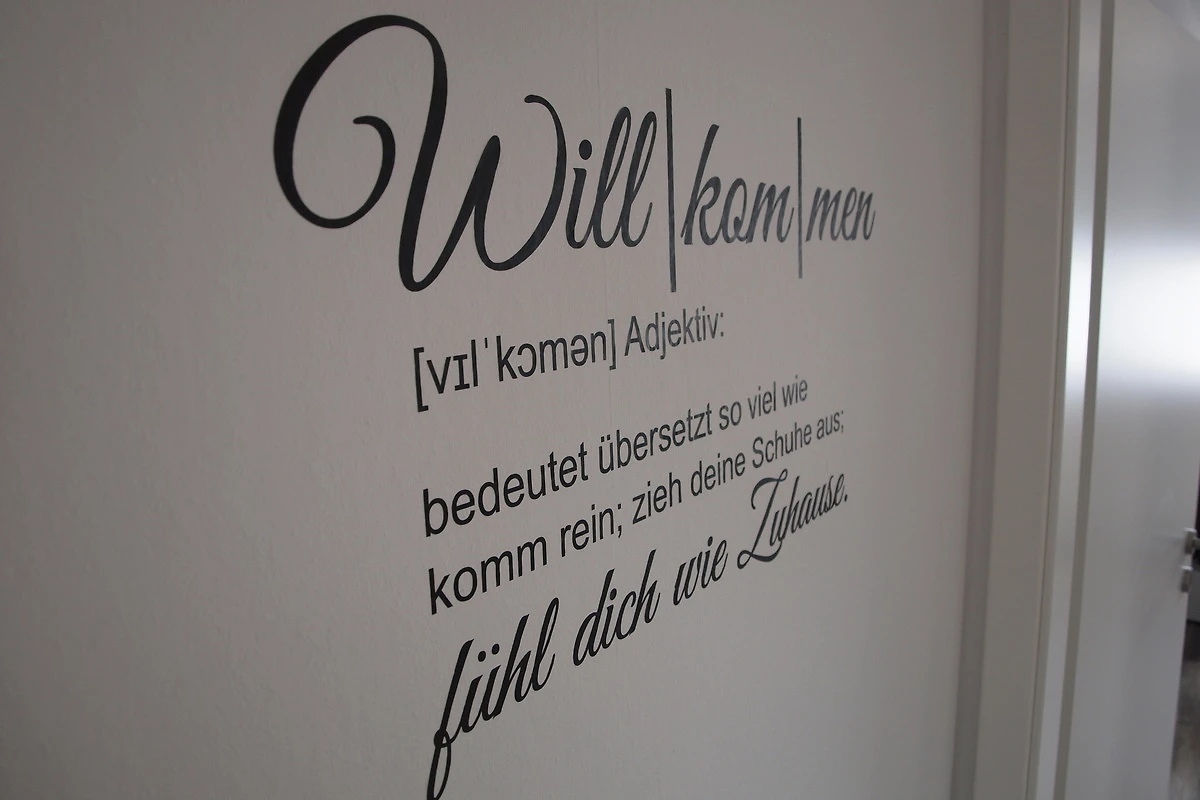 Will|kom|men
[vɪlˈkɔmən] Adjektiv:
bedeutet übersetzt so viel wie
komm rein; zieh deine Schuhe aus;
fühl dich wie Zuhause.